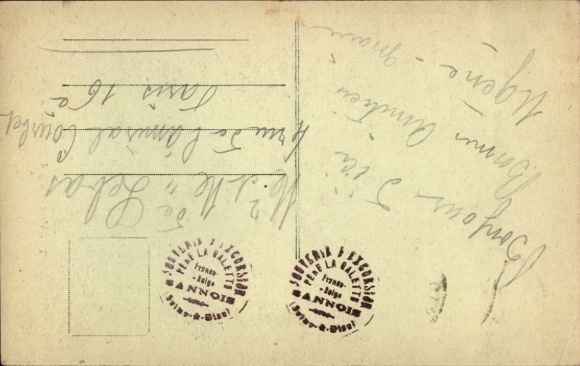 Bonjour d'ici
Bonnes Amitiés
M & Mlle de Lebas
4 rue de l'Amiral Courbet
Paris 16e
SOUVENIR D'EXCURSION
PÈRE LA GALETTE
Franco-
-Belge
SANNOIS
(Seine-&-Oise)
SOUVENIR D'EXCURSION
PÈRE LA GALETTE
Franco-
-Belge
SANNOIS
(Seine-&-Oise)